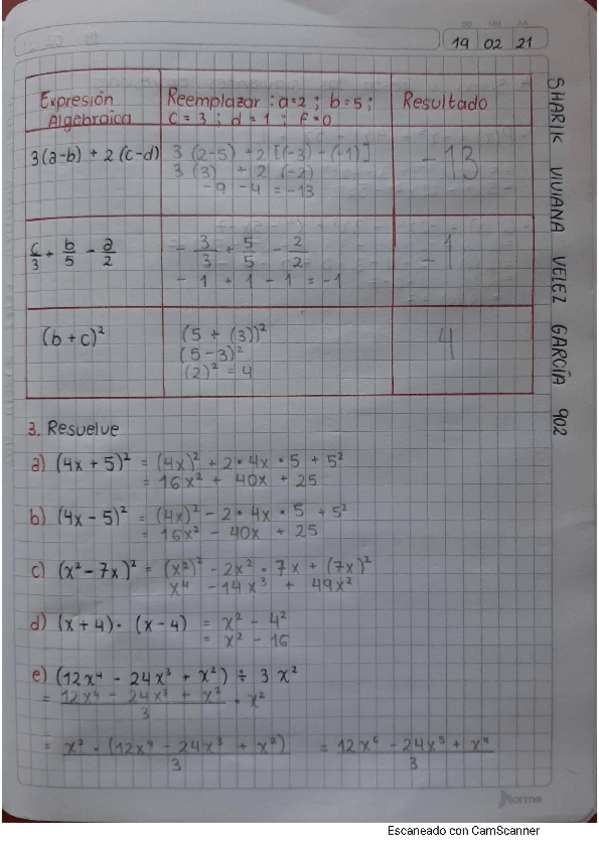 DD MM AA
19 02 21
SHARIK VIVIANA VELEZ GARCÍA 902
Expresión Algebraica
Reemplazar: a=2; b=5; c=3; d=1; f=0
Resultado
3(a-b) + 2(c-d)
3 (2-5) + 2 [(-3) - (-1)]
3 (3) + 2 (-2)
-9 -4 = -13
-13
c/3 + b/5 - a/2
- 3/3 + 5/5 - 2/2
- 1 + 1 - 1 = -1
-1
(b+c)²
(5 + (3))²
(5-3)²
(2)² = 4
4
3. Resuelve
a) (4x + 5)² = (4x)² + 2 · 4x · 5 + 5²
= 16x² + 40x + 25
b) (4x - 5)² = (4x)² - 2 · 4x · 5 + 5²
= 16x² - 40x + 25
c) (x² - 7x)² = (x²)² - 2x² · 7x + (7x)²
x⁴ - 14x³ + 49x²
d) (x + 4) · (x - 4) = x² - 4²
= x² - 16
e) (12x⁴ - 24x³ + x²) ÷ 3x²
= 12x⁴ - 24x³ + x² / 3 · x²
= x² · (12x⁴ - 24x³ + x²) / 3 = 12x⁶ - 24x⁵ + x⁴ / 3
norma
Escaneado con CamScanner